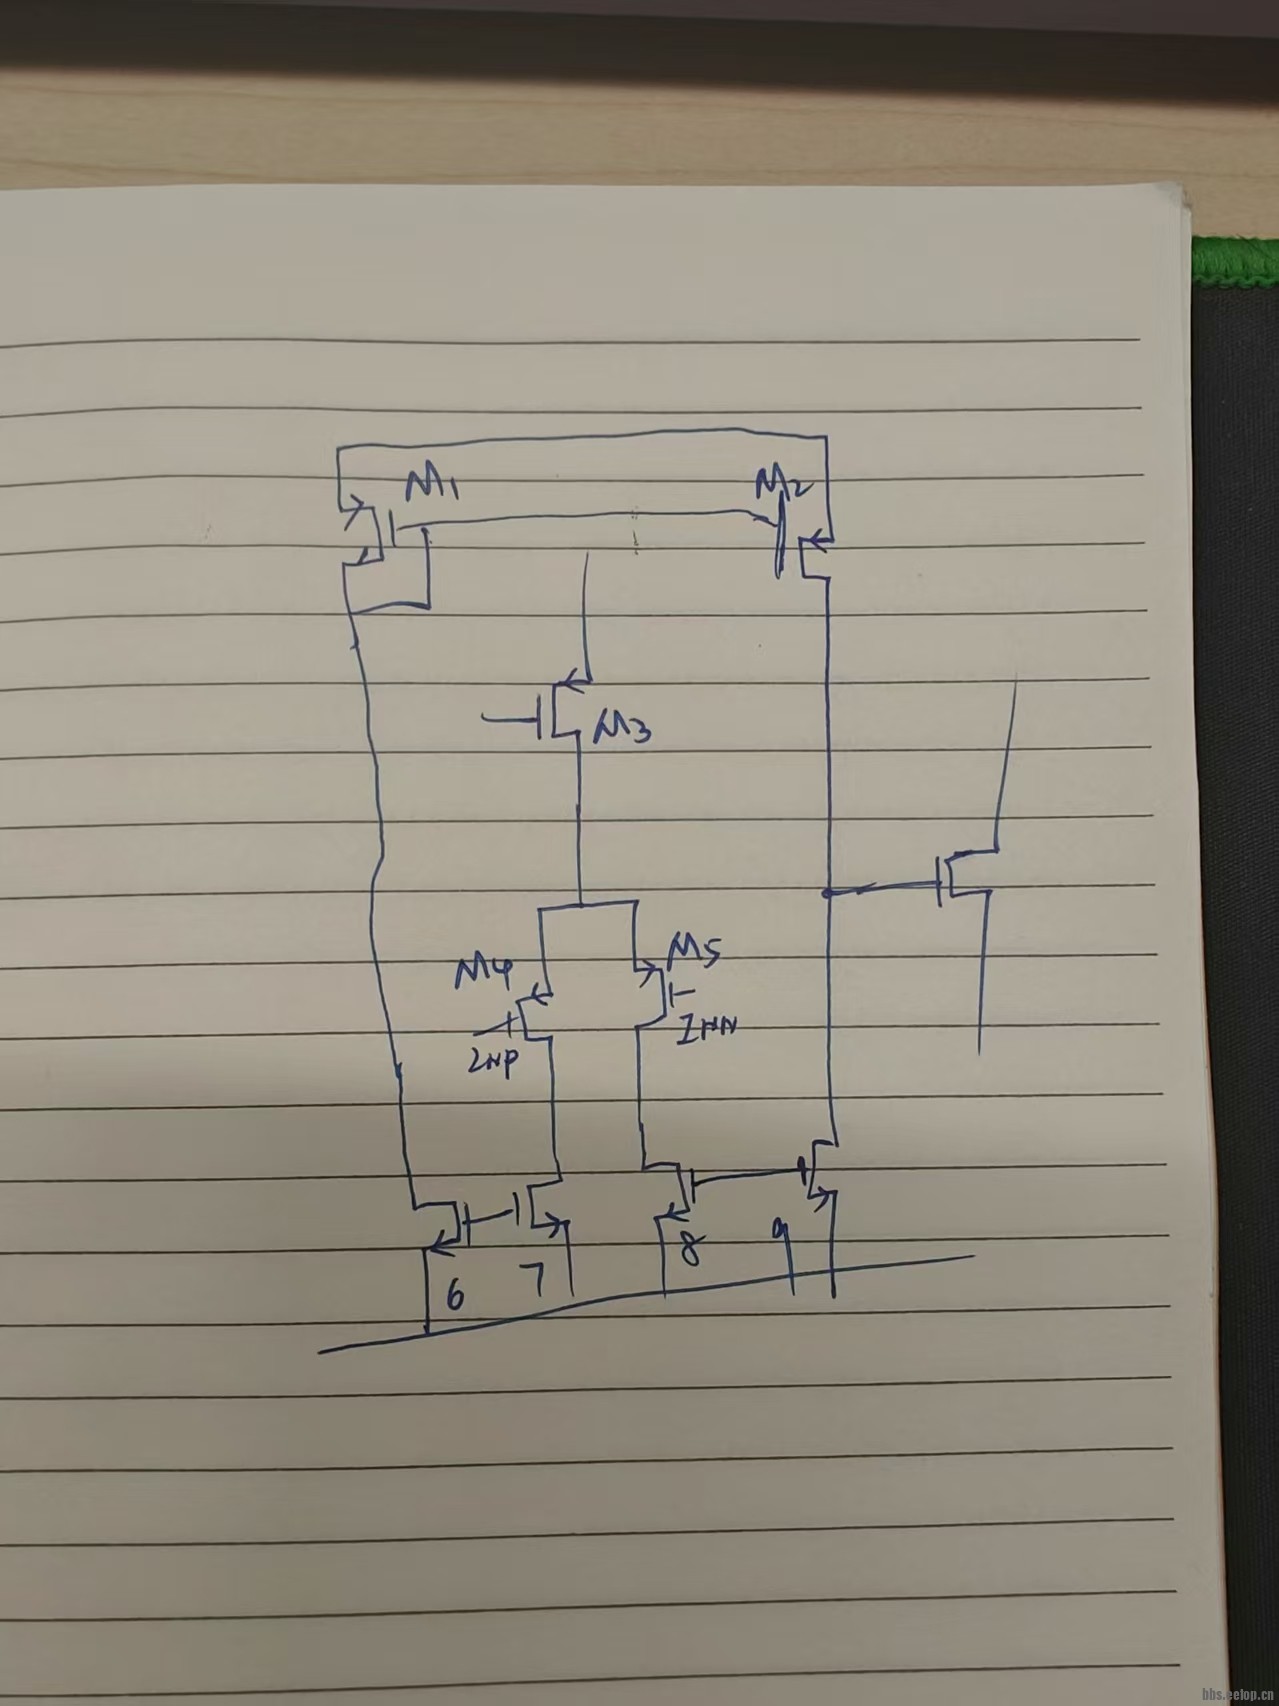 M1
M2
M3
M4
M5
INP
INN
6
7
8
9
bbs.eetop.cn